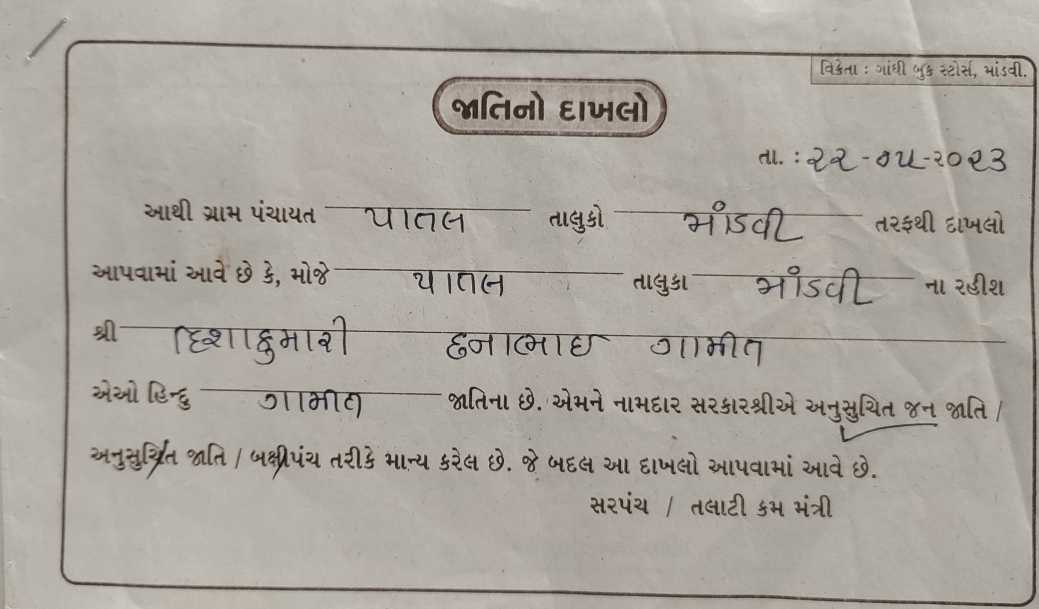 વિક્રેતા : ગાંધી બુક સ્ટોર્સ, માંડવી.
જાતિનો દાખલો
તા. : ૨૨-૦૫-૨૦૨૩
આથી ગ્રામ પંચાયત પાતલ તાલુકો માંડવી તરફથી દાખલો
આપવામાં આવે છે કે, મોજે પાતલ તાલુકા માંડવી ના રહીશ
શ્રી દિશાકુમારી છનાભાઇ ગામીત
એઓ હિન્દુ ગામીત જાતિના છે. એમને નામદાર સરકારશ્રીએ અનુસુચિત જન જાતિ /
અનુસુચિત જાતિ / બક્ષીપંચ તરીકે માન્ય કરેલ છે. જે બદલ આ દાખલો આપવામાં આવે છે.
સરપંચ / તલાટી કમ મંત્રી